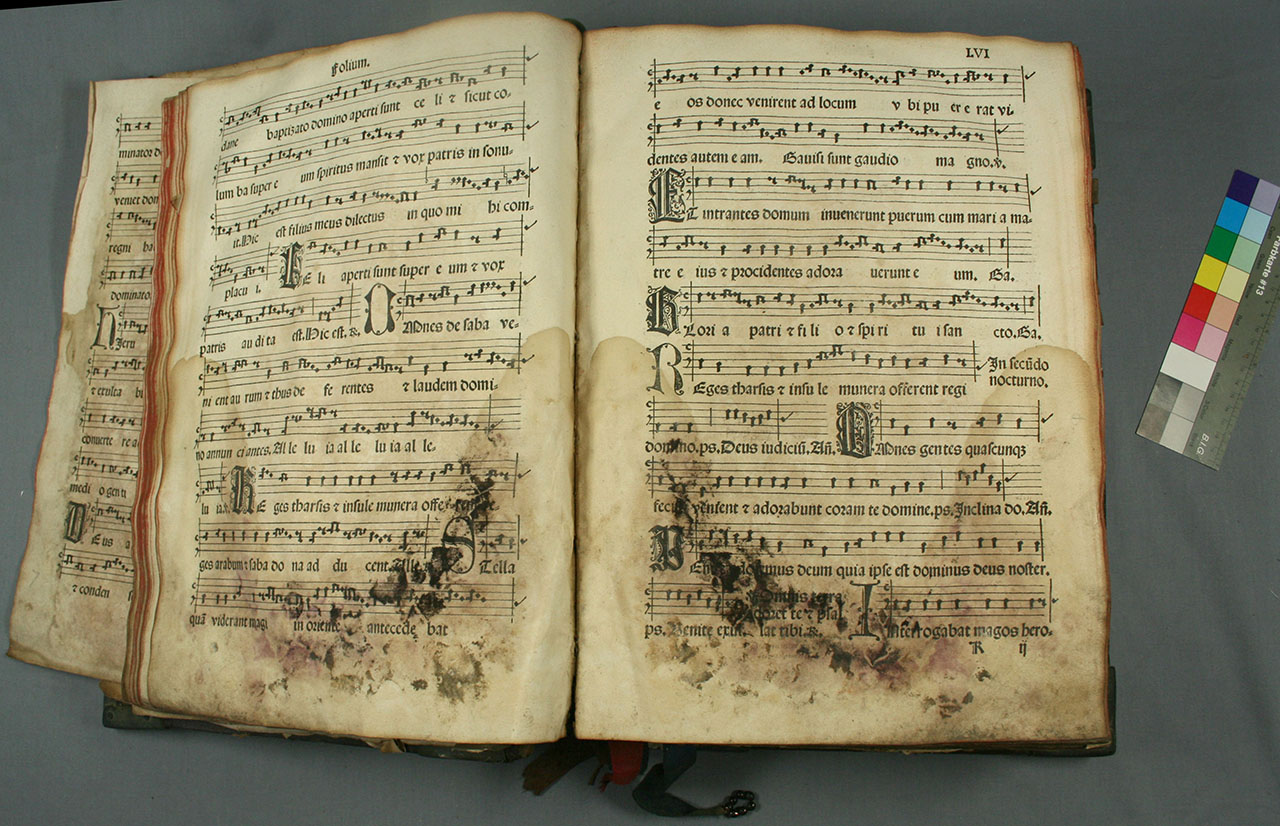 minator d
veniet don
regni ba
dominato
Jeru
& exulta bi
converte re a
medi o gen ti
E us a
& conden s
Folium.
dane baptizato domino aperti sunt ce li ⁊ sicut co-
lum ba super e um spiritus mansit ⁊ vox patris in sonu-
it. Hic est filius meus dilectus in quo mi bi com-
placu i. E li aperti sunt super e um ⁊ vox
patris au di ta est. Hic est. ⁊c. OMnes de saba ve-
ni ent au rum ⁊ thus de fe rentes ⁊ laudem domi-
no annun ci antes. Al le lu ia al le lu ia al le.
lu ia. RE ges tharsis ⁊ insule munera offe
ges arabum ⁊ saba do na ad du cent. STella
quā viderant magi in oriente antecede bat
LVI
e os donec venirent ad locum v bi pu er e rat vi-
dentes autem e am. Gauisi sunt gaudio ma gno. v.
ET intrantes domum inuenerunt puerum cum mari a ma-
tre e ius ⁊ procidentes adora uerunt e um. Ga.
GLori a patri ⁊ fi li o ⁊ spi ri tu i san cto. Ga.
REges tharsis ⁊ insu le munera offerent regi In secūdo
nocturno.
domino. ps. Deus iudiciū. Añ. OMnes gentes quascunqꝫ
fecisti venient ⁊ adorabunt coram te domine. ps. Inclina do. Añ.
VEni dominus deum quia ipse est dominus deus noster.
Omnis terra
Adoret te ⁊ psal
ps. Venite exul. lat tibi. ⁊c. INterrogabat magos hero-
K ij
Farbkarte #13
BIG